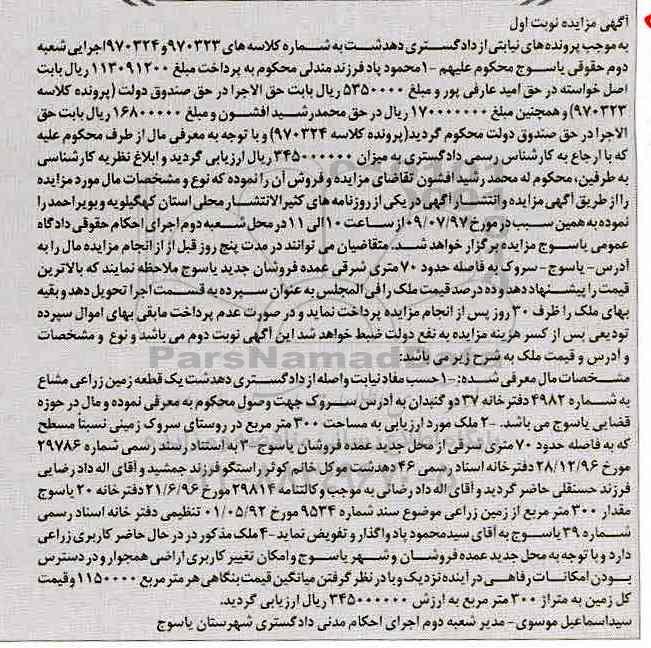 آگهی مزایده نوبت اول
به موجب پرونده‌های نیابتی از دادگستری دهدشت به شماره کلاسه های ۹۷۰۳۲۳و ۹۷۰۳۲۴اجرایی شعبه
دوم حقوقی یاسوج محکوم علیهم -۱محمود پاد فرزند مندلی محکوم به پرداخت مبلغ ۱۱۳۰۹۱۲۰۰ ریال بابت
اصل خواسته در حق امید عارفی پور و مبلغ ۵۳۵۰۰۰۰ ریال بابت حق الاجرا در حق صندوق دولت (پرونده کلاسه
۹۷۰۳۲۳) و همچنین مبلغ ۱۷۰۰۰۰۰۰۰ ریال در حق محمدرشید افشون و مبلغ ۱۶۸۰۰۰۰۰ ریال بابت حق
الاجرا در حق صندوق دولت محکوم گردید(پرونده کلاسه ۹۷۰۳۲۴) و با توجه به معرفی مال از طرف محکوم علیه
که با ارجاع به کارشناس رسمی دادگستری به میزان ۳۴۵۰۰۰۰۰۰ ریال ارزیابی گردید و ابلاغ نظریه کارشناسی
به طرفین، محکوم له محمد رشید افشون تقاضای مزایده و فروش آن را نموده که نوع و مشخصات مال مورد مزایده
را از طریق آگهی مزایده و انتشار آگهی در یکی از روزنامه های کثیرالانتشار محلی استان کهگیلویه و بویراحمد را
نموده به همین سبب در مورخ ۰۹/۰۷/۹۷از ساعت ۱۰ الی ۱۱ در محل شعبه دوم اجرای احکام حقوقی دادگاه
عمومی یاسوج مزایده برگزار خواهد شد. متقاضیان می توانند در مدت پنج روز قبل از از انجام مزایده مال را به
آدرس- یاسوج - سروک به فاصله حدود ۷۰ متری شرقی عمده فروشان جدید یاسوج ملاحظه نمایند که بالاترین
قیمت را پیشنهاد دهد و ده درصد قیمت ملک را فی المجلس به عنوان سپرده به قسمت اجرا تحویل دهد و بقیه
بهای ملک را ظرف ۳۰ روز پس از انجام مزایده پرداخت نماید و در صورت عدم پرداخت مابقی بهای اموال سپرده
تودیعی پس از کسر هزینه مزایده به نفع دولت ضبط خواهد شد این آگهی نوبت دوم می باشد و نوع و مشخصات
و آدرس و قیمت ملک به شرح زیر می باشد:
ParsNamadData
مشخصات مال معرفی شده: -۱ حسب مفاد نیابت واصله از دادگستری دهدشت یک قطعه زمین زراعی مشاع
به شماره ۴۹۸۲ دفترخانه ۳۷ دو گنبدان به آدرس سروک جهت وصول محکوم به معرفی نموده و مال در حوزه
قضایی یاسوج می باشد. -۲ ملک مورد ارزیابی به مساحت ۳۰۰ متر مربع در روستای سروک زمینی نسبتاً مسطح
که به فاصله حدود ۷۰ متری شرقی از محل جدید عمده فروشان یاسوج-۳ به استناد رسند رسمی شماره ۲۹۷۸۶
مورخ ۲۸/۱۲/۹۶ دفترخانه اسناد رسمی ۴۶ دهدشت موکل خانم کوثر راستگو فرزند جمشید و آقای اله داد رضایی
فرزند حسنقلی حاضر گردید و آقای اله داد رضائی به موجب وکالتنامه ۲۹۸۱۴ مورخ ۲۱/۶/۹۶ دفترخانه ۲۰ یاسوج
مقدار ۳۰۰ متر مربع از زمین زراعی موضوع سند شماره ۹۵۳۴ مورخ ۰۱/۰۵/۹۲ تنظیمی دفتر خانه اسناد رسمی
شماره ۳۹ یاسوج به آقای سیدمحمود پاد واگذار و تفویض نماید -۴ ملک مذکور در در حال حاضر کاربری زراعی
دارد و با توجه به محل جدید عمده فروشان و شهر یاسوج و امکان تغییر کاربری اراضی همجوار و در دسترس
بودن امکانات رفاهی در آینده نزدیک و با در نظر گرفتن میانگین قیمت بنگاهی هر متر مربع ۱۱۵۰۰۰۰ و قیمت
کل زمین به متراژ ۳۰۰ متر مربع به ارزش ۳۴۵۰۰۰۰۰۰ ریال ارزیابی گردید.
سیداسماعیل موسوی- مدیر شعبه دوم اجرای احکام مدنی دادگستری شهرستان یاسوج